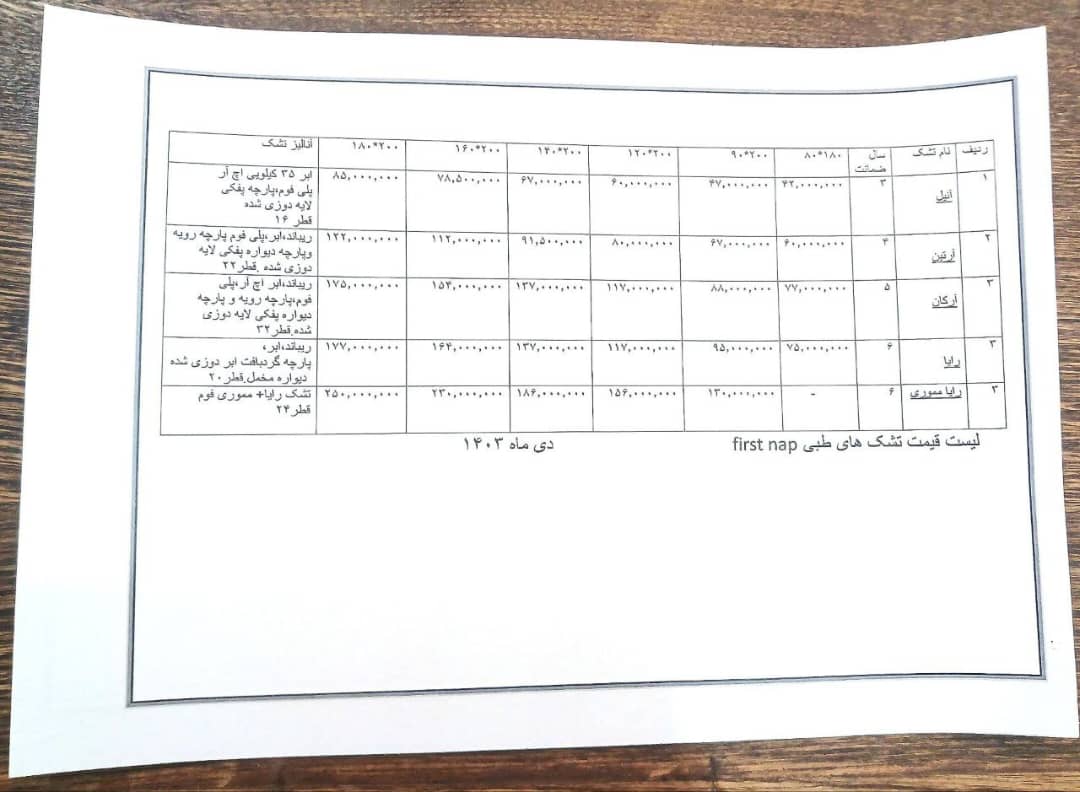 ردیف نام تشک سال ضمانت ۸۰*۱۸۰ ۹۰*۲۰۰ ۱۲۰*۲۰۰ ۱۴۰*۲۰۰ ۱۶۰*۲۰۰ ۱۸۰*۲۰۰ آنالیز تشک
۱ آنیل ۳ ۴۲,۰۰۰,۰۰۰ ۴۷,۰۰۰,۰۰۰ ۶۰,۰۰۰,۰۰۰ ۶۷,۰۰۰,۰۰۰ ۷۸,۵۰۰,۰۰۰ ۸۵,۰۰۰,۰۰۰ ابر ۳۵ کیلویی اچ آر
پلی فوم،پارچه پفکی
لایه دوزی شده
قطر ۱۶
۲ آرتین ۴ ۶۰,۰۰۰,۰۰۰ ۶۷,۰۰۰,۰۰۰ ۸۰,۰۰۰,۰۰۰ ۹۱,۵۰۰,۰۰۰ ۱۱۲,۰۰۰,۰۰۰ ۱۲۲,۰۰۰,۰۰۰ ریباند،ابر،پلی فوم پارچه رویه
وپارچه دیواره پفکی لایه
دوزی شده .قطر۲۲
۳ آرکان ۵ ۷۷,۰۰۰,۰۰۰ ۸۸,۰۰۰,۰۰۰ ۱۱۷,۰۰۰,۰۰۰ ۱۳۷,۰۰۰,۰۰۰ ۱۵۴,۰۰۰,۰۰۰ ۱۷۵,۰۰۰,۰۰۰ ریباند،ابر اچ آر،پلی
فوم،پارچه رویه و پارچه
دیواره پفکی لایه دوزی
شده.قطر۳۲
۳ رایا ۶ ۷۵,۰۰۰,۰۰۰ ۹۵,۰۰۰,۰۰۰ ۱۱۷,۰۰۰,۰۰۰ ۱۳۷,۰۰۰,۰۰۰ ۱۶۴,۰۰۰,۰۰۰ ۱۷۷,۰۰۰,۰۰۰ ریباند،ابر،
پارچه گردبافت ابر دوزی شده
دیواره مخمل.قطر۲۰
۳ رایا مموری ۶ - ۱۳۰,۰۰۰,۰۰۰ ۱۵۶,۰۰۰,۰۰۰ ۱۸۶,۰۰۰,۰۰۰ ۲۳۰,۰۰۰,۰۰۰ ۲۵۰,۰۰۰,۰۰۰ تشک رایا+ مموری فوم
قطر۲۴
لیست قیمت تشک های طبی first nap دی ماه ۱۴۰۳